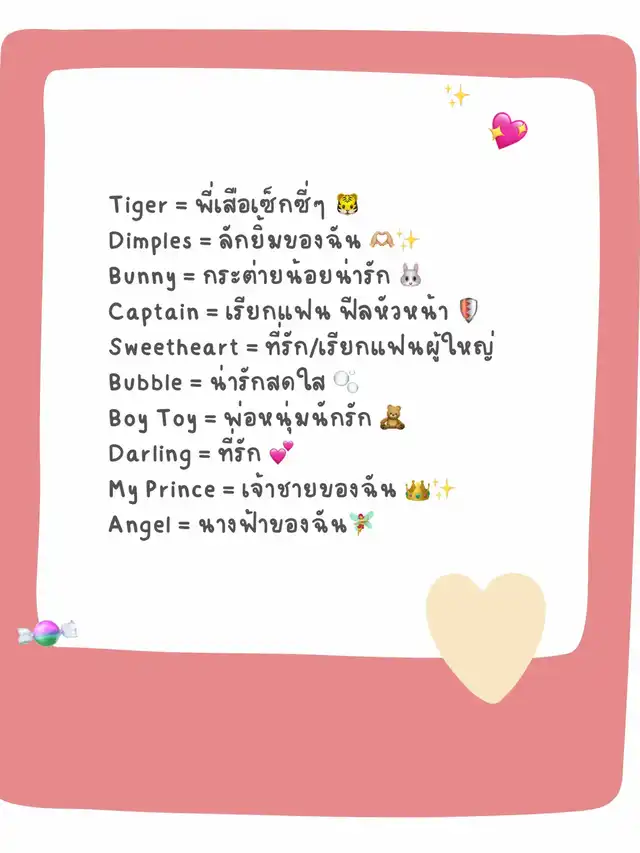 Tiger = พี่เสือเซ็กซี่ๆ 🐯
Dimples = ลักยิ้มของฉัน 🫶🏼✨
Bunny = กระต่ายน้อยน่ารัก 🐰
Captain = เรียกแฟน ฟีลหัวหน้า 🛡️
Sweetheart = ที่รัก/เรียกแฟนผู้ใหญ่
Bubble = น่ารักสดใส 🫧
Boy Toy = พ่อหนุ่มนักรัก 🧸
Darling = ที่รัก 💕
My Prince = เจ้าชายของฉัน 👑✨
Angel = นางฟ้าของฉัน🧚🏻‍♀️